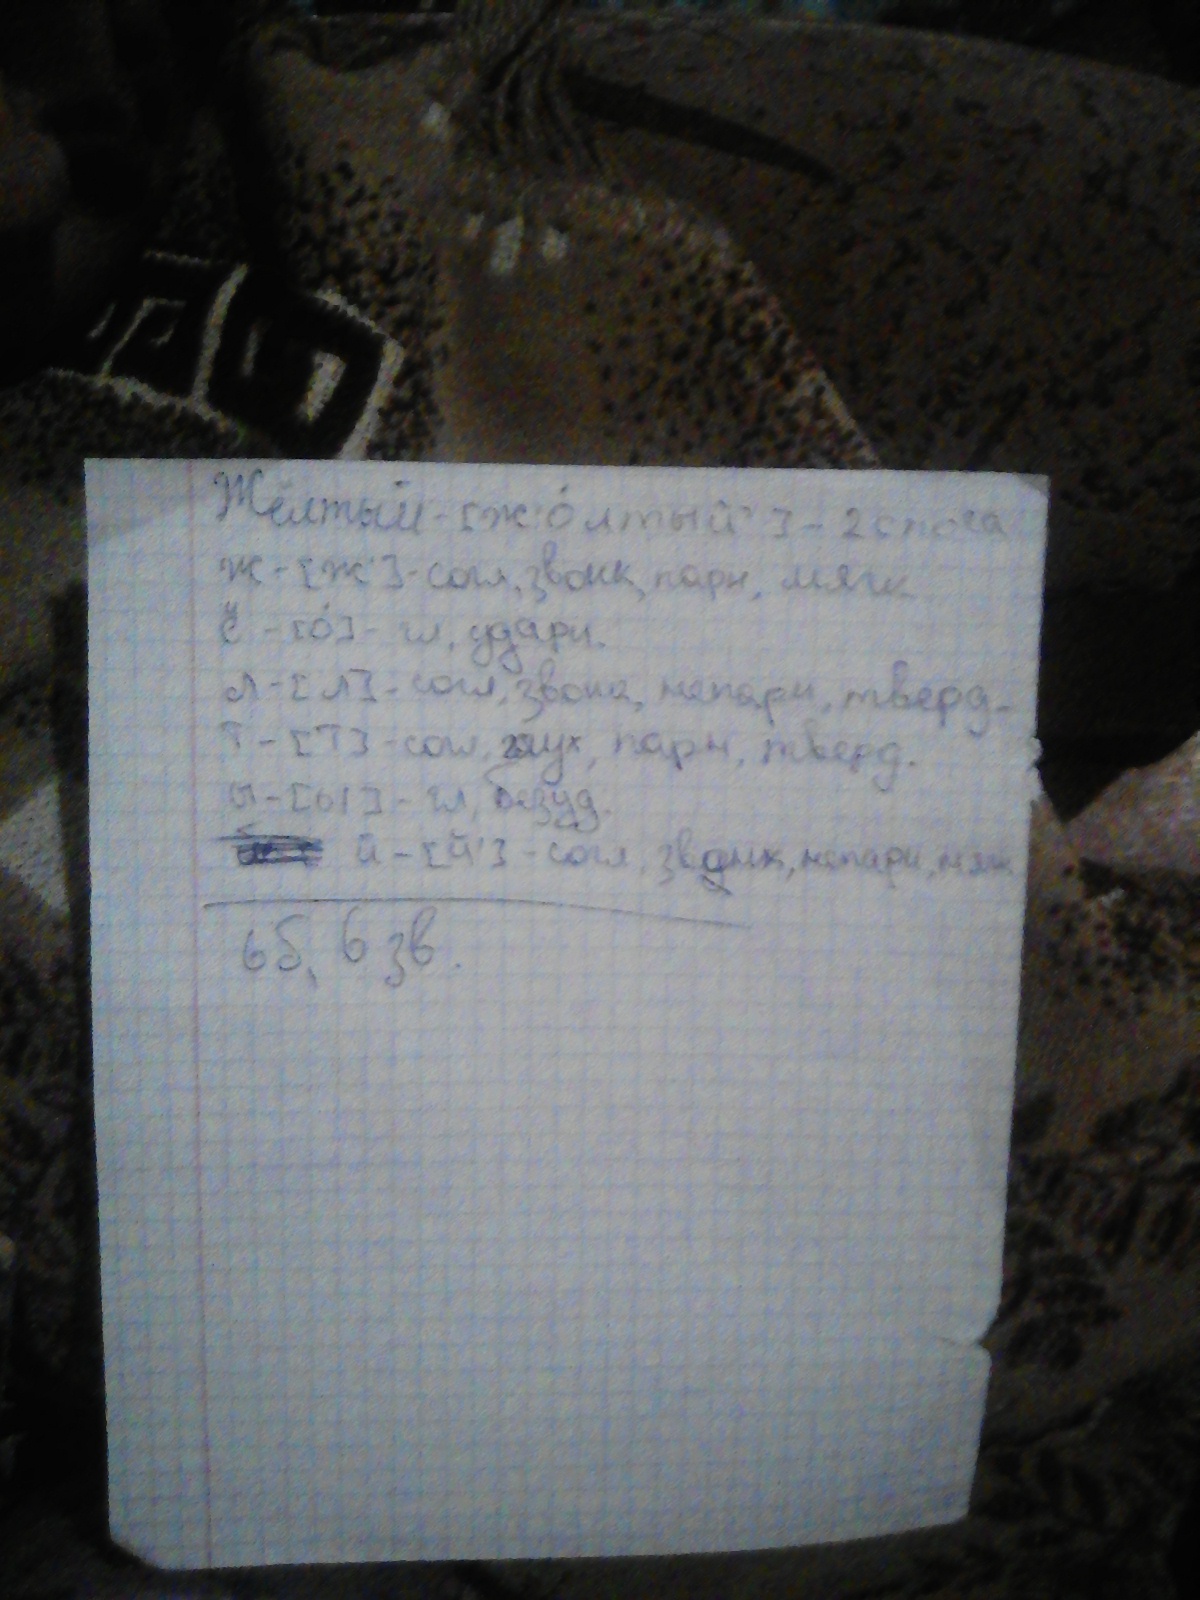 Жёлтый - [ж'о́лтый'] - 2 слога
Ж - [ж'] - согл, звонк, парн, мягк
ё - [о́] - гл, ударн.
л - [л] - согл, звонк, непарн, тверд.
т - [т] - согл, глух, парн, тверд.
ы - [ы] - гл, безуд.
й - [й'] - согл, звонк, непарн, мягк
6 б, 6 зв.